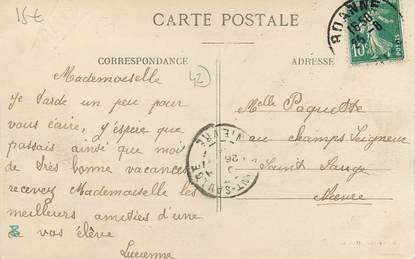 15€
CARTE POSTALE
CORRESPONDANCE
ADRESSE
42
ROANNE
16 30
25 - 8
10
Mademoiselle
Je tarde un peu pour
vous écrire, j'espère que
passais ainsi que moi
de très bonne vacances
recevez Mademoiselle les
meilleurs amitiées d'une
de vos élève
Lucienne
Melle Paquette
au champs Seigneur
Saint Sauge
Nièvre
ST-SAULGE
NIEVRE
26